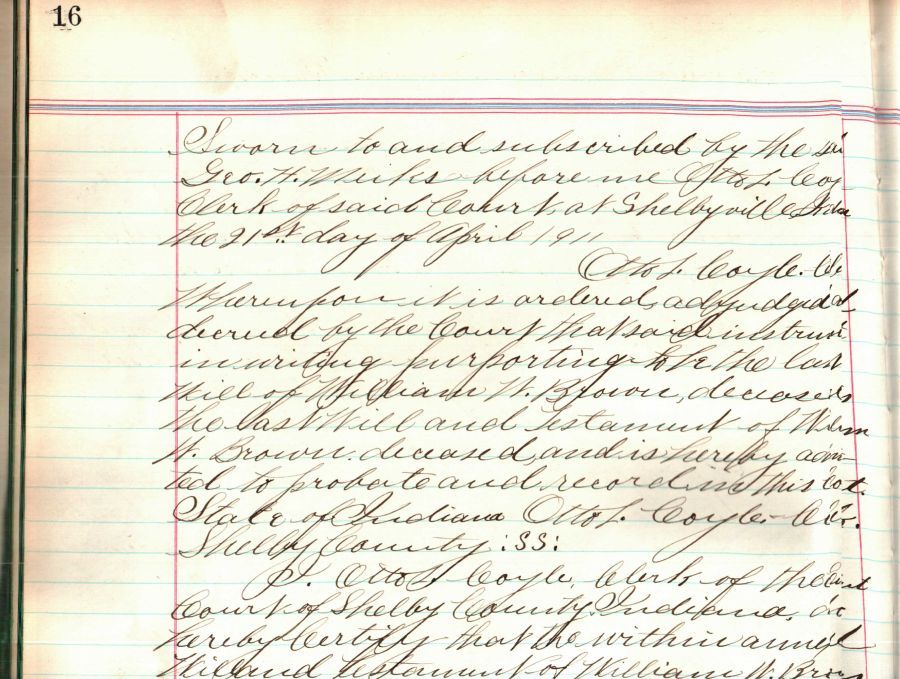 16
Sworn to and subscribed by the
Geo. H. Meiks before me Otto L. Coy
Clerk of said Court, at Shelbyville
the 21st day of April 1911
Otto L. Coyle.
Whereupon it is ordered, adjudged
decreed by the Court that said
in writing purporting to be the last
Will of William W. Brown, deceased
the last Will and Testament of
W. Brown. deceased, and is hereby
ted to probate and record in this
State of Indiana Otto L. Coyle
Shelby County :SS:
I. Otto L. Coyle, Clerk of the
Court of Shelby County, Indiana,
hereby Certify that the within
Will and Testament of William W.